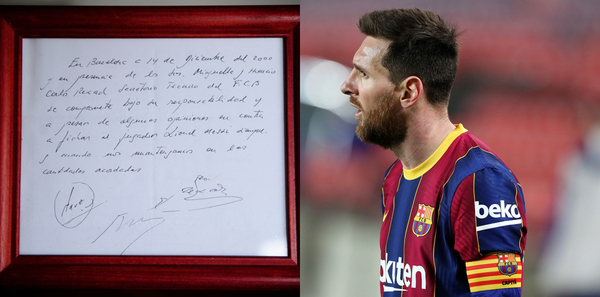 En Barcelona a 14 de Diciembre del 2000
y en presencia de los Srs. Minguella y Horacio
Carles Rexach Secretario Técnico del F.C.B
se compromete bajo su responsabilidad y
a pesar de algunas opiniones en contra
a fichar al jugador Lionel Messi
y cuando nos mantengamos en las
cantidades acordadas
beko
Rakuten
CAPITÀ